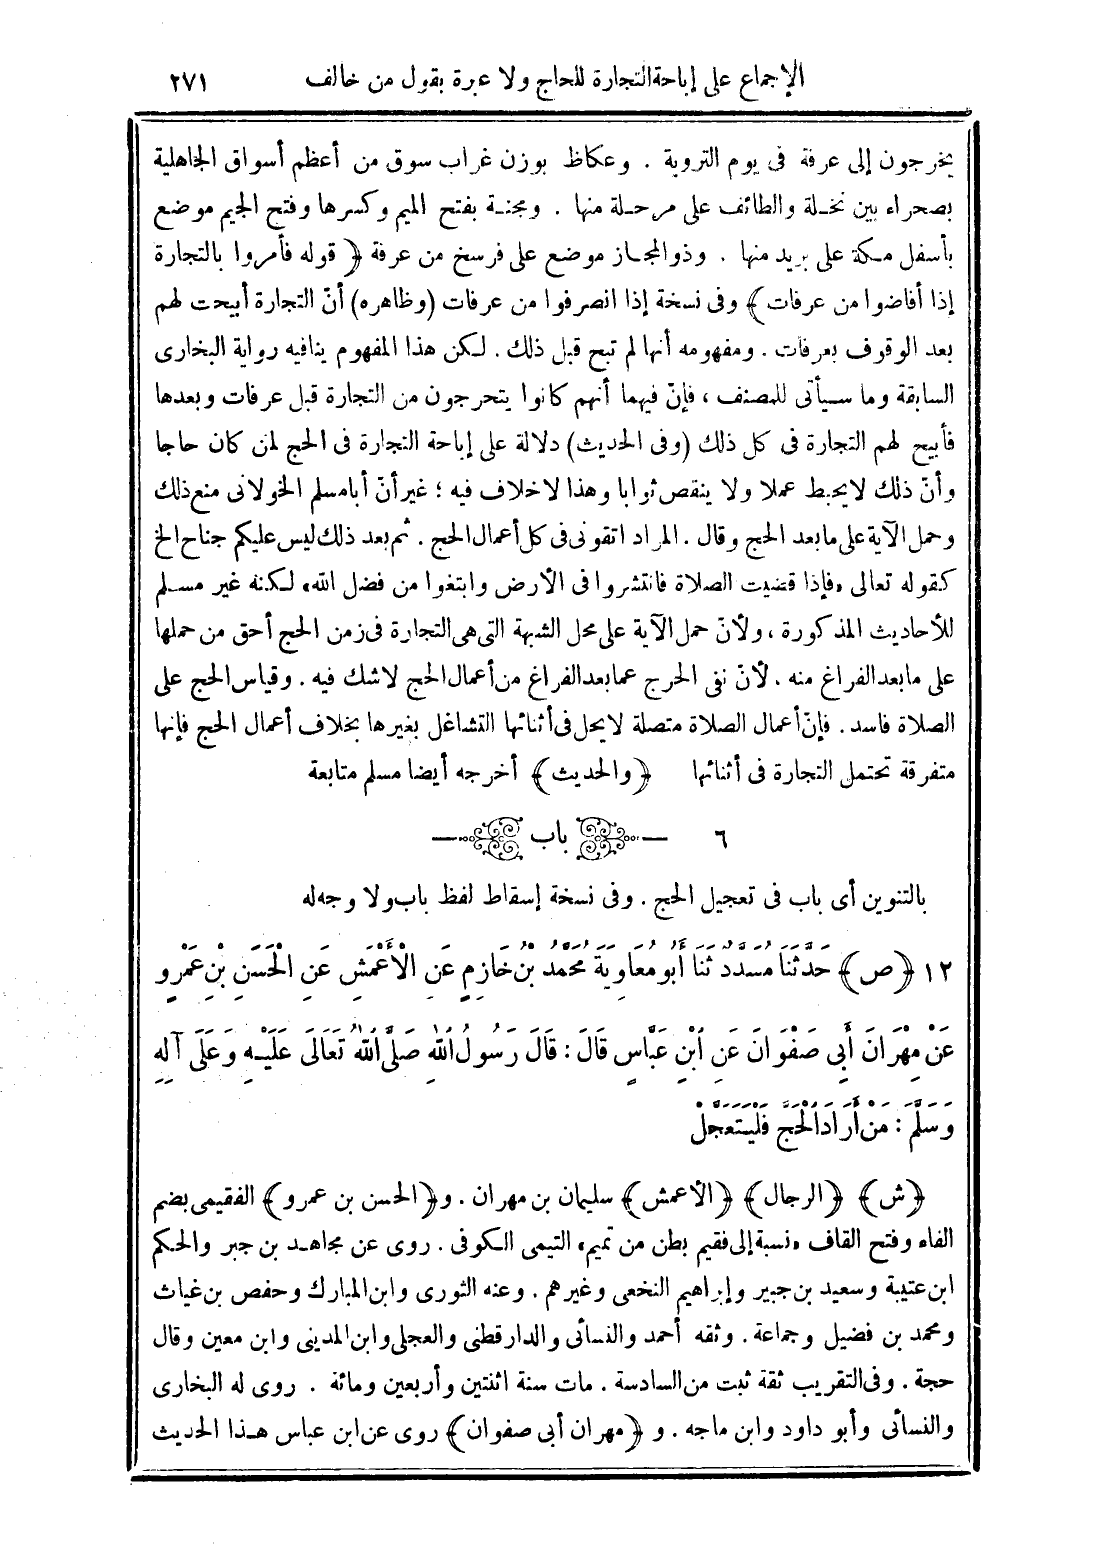 الإجماع على إباحة التجارة للحاج ولا عبرة بقول من خالف ٢٧١
يخرجون إلى عرفة فى يوم التروية . وعكاظ بوزن غراب سوق من أعظم أسواق الجاهلية
بصحراء بين نخلة والطائف على مرحلة منها . ومجنة بفتح الميم وكسرها وفتح الجيم موضع
بأسفل مكة على بريد منها . وذو المجاز موضع على فرسخ من عرفة ﴿ قوله فأمروا بالتجارة
إذا أفاضوا من عرفات﴾ وفى نسخة إذا انصرفوا من عرفات (وظاهره) أنّ التجارة أبيحت لهم
بعد الوقوف بعرفات . ومفهومه أنها لم تبح قبل ذلك . لكن هذا المفهوم ينافيه رواية البخارى
السابقة وما سيأتى للمصنف ، فإنّ فيهما أنهم كانوا يتحرجون من التجارة قبل عرفات وبعدها
فأبيح لهم التجارة فى كل ذلك (وفى الحديث) دلالة على إباحة التجارة فى الحج لمن كان حاجا
وأنّ ذلك لا يحبط عملا ولا ينقص ثوابا وهذا لا خلاف فيه ؛ غير أنّ أبا مسلم الخولانى منع ذلك
وحمل الآية على ما بعد الحج وقال . المراد اتقونى فى كل أعمال الحج . ثم بعد ذلك ليس عليكم جناح الخ
كقوله تعالى «فإذا قضيت الصلاة فانتشروا فى الأرض وابتغوا من فضل الله» لكنه غير مسلم
للأحاديث المذكورة ، ولأنّ حمل الآية على محل الشبهة التى هى التجارة فى زمن الحج أحق من حملها
على ما بعد الفراغ منه . لأنّ نفى الحرج عما بعد الفراغ من أعمال الحج لا شك فيه . وقياس الحج على
الصلاة فاسد . فإنّ أعمال الصلاة متصلة لا يحل فى أثنائها التشاغل بغيرها بخلاف أعمال الحج فإنها
متفرقة تحتمل التجارة فى أثنائها ﴿والحديث﴾ أخرجه أيضا مسلم متابعة
٦ باب
بالتنوين أى باب فى تعجيل الحج . وفى نسخة إسقاط لفظ باب ولا وجه له
١٢ ﴿ص﴾ حَدَّثَنَا مُسَدَّدٌ ثَنَا أَبُو مُعَاوِيَةَ مُحَمَّدُ بْنُ خَازِمٍ عَنِ الْأَعْمَشِ عَنِ الْحَسَنِ بْنِ عَمْرٍو
عَنْ مِهْرَانَ أَبِى صَفْوَانَ عَنِ ابْنِ عَبَّاسٍ قَالَ : قَالَ رَسُولُ اللهِ صَلَّى اللهُ تَعَالَى عَلَيْهِ وَعَلَى آلِهِ
وَسَلَّمَ : مَنْ أَرَادَ الْحَجَّ فَلْيَتَعَجَّلْ
﴿ش﴾ ﴿الرجال﴾ ﴿الأعمش﴾ سليمان بن مهران . و﴿الحسن بن عمرو﴾ الفقيمى بضم
الفاء وفتح القاف «نسبة إلى فقيم بطن من تميم» التيمى الكوفى . روى عن مجاهد بن جبر والحكم
ابن عتيبة وسعيد بن جبير وإبراهيم النخعى وغيرهم . وعنه الثورى وابن المبارك وحفص بن غياث
ومحمد بن فضيل وجماعة . وثقه أحمد والنسائى والدارقطنى والعجلى وابن المدينى وابن معين وقال
حجة . وفى التقريب ثقة ثبت من السادسة . مات سنة اثنتين وأربعين ومائة . روى له البخارى
والنسائى وأبو داود وابن ماجه . و ﴿مهران أبى صفوان﴾ روى عن ابن عباس هذا الحديث